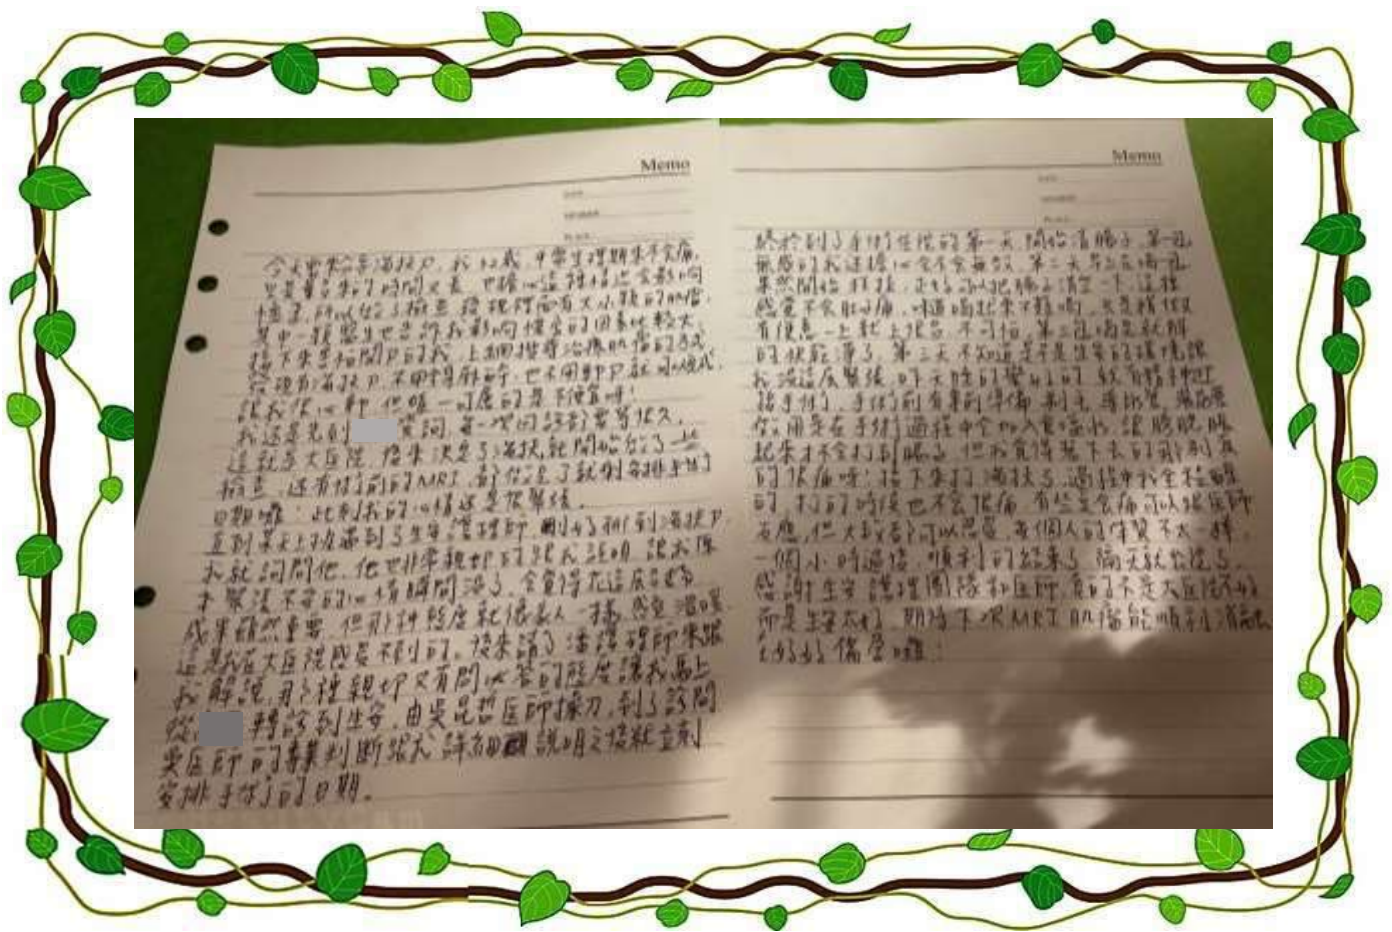 Memo
今天要來分享海扶刀,我42歲,平常生理期來不會痛,
只是量多來的時間又長,也擔心這種情況會影響
懷孕,所以做了檢查發現裡面有大小顆的肌瘤,
其中一顆醫生也告訴我影響懷孕的因素比較大,
接下來害怕開刀的我,上網搜尋治療肌瘤的方式,
發現有海扶刀,不用全身麻醉,也不用動刀就可以完成,
讓我很心動,但唯一可慮的是不便宜呀!
我還是先到 詢問,每一次回診都要等很久,
這就是大医院,後來決定了海扶,就開始做了一些
檢查,還有術前的MRI,都做完了就剩安排手術
日期囉,此刻我的心情還是很緊張。
直到某天上班遇到了生安管理師,剛好聊到海扶刀
我就詢問他,他也非常親切的跟我說明,讓我原
本緊張不安的心情瞬間沒了,會覺得在這底
成果雖然重要,但那種態度就像家人一樣,感覺溫暖,
這是我在大医院感受不到的,後來請了潘護理師來跟
我解說,那種親切又有問必答的態度讓我馬上
從 轉診到生安,由吳昆哲医師操刀,到了診間
吳医師的專業判斷跟我詳細說明之後就立刻
安排手術的日期。
Memo
終於到了手術住院的第一天,開始清腸子,第一包
無感的我還擔心會不會無效,第二天早上在喝一包
果然開始拜拜,正好可以把腸子清空一下,這種
感覺不會肚子痛,味道喝起來不難喝,只是稍微
有便意一上就上很多,不可怕,第二包喝完就解
的快乾淨了,第三天不知道是不是生安的環境讓
我沒這麼緊張,昨天睡的蠻好的,就有精神迎
接手術了,手術前有事前準備,剃毛,導尿管,
你,用是在手術過程中會加入食鹽水,讓膀胱脹
起來才不會打到腸子,但我覺得
的很痛呀!接下來打海扶了,過程中我全程醒
的,打的時候也不會很痛,有些是會痛可以跟医師
反應,但大致都可以忍受,每個人的体質不太一樣,
一個小時過後,順利的結束了,隔天就出院了。
感謝生安護理團隊和医師,真的不是大医院不好
而是生安太好,期待下次MRI肌瘤能順利消融
好好備孕囉!